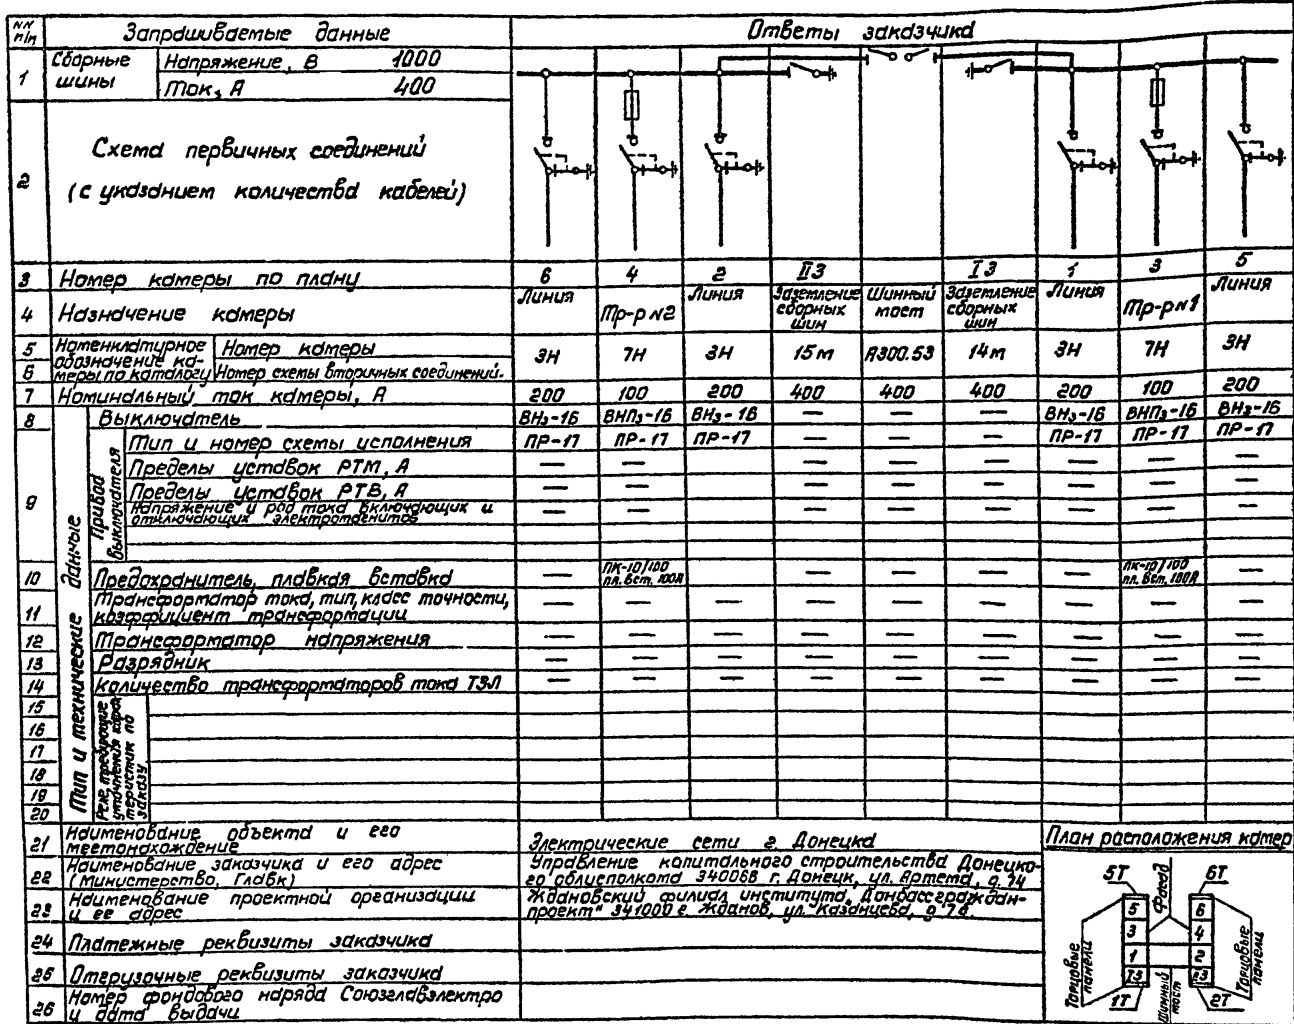 NN п/п Запрашиваемые данные Ответы заказчика
1 Сборные шины Напряжение, В 1000
Ток, А 400
2 Схема первичных соединений
(с указанием количества кабелей)
3 Номер камеры по плану 6 4 2 II3 I3 1 3 5
4 Назначение камеры Линия Тр-р N2 Линия Заземление сборных шин Шинный мост Заземление сборных шин Линия Тр-р N1 Линия
5 Номенклатурное обозначение камеры по каталогу Номер камеры 3Н 7Н 3Н 15м А300.53 14м 3Н 7Н 3Н
6 Номер схемы вторичных соединений.
7 Номинальный ток камеры, А 200 100 200 400 400 400 200 100 200
Тип и технические данные
8 Выключатель ВНз-16 ВНПз-16 ВНз-16 — — — ВНз-16 ВНПз-16 ВНз-16
9 Привод выключателя
Тип и номер схемы исполнения ПР-17 ПР-17 ПР-17 — — — ПР-17 ПР-17 ПР-17
Пределы уставок РТМ, А — — — — — — — —
Пределы уставок РТВ, А — — — — — — — —
Напряжение и род тока включающих и отключающих электромагнитов — — — — — — — — —
10 Предохранитель, плавкая вставка — ПК-10/100 пл. вст. 100А — — — — — ПК-10/100 пл. вст. 100А —
11 Трансформатор тока, тип, класс точности, коэффициент трансформации — — — — — — — — —
12 Трансформатор напряжения — — — — — — — — —
13 Разрядник — — — — — — — — —
14 Количество трансформаторов тока ТЗЛ — — — — — — — — —
Реле, требующие уточнения характеристик по заказу
15
16
17
18
19
20
21 Наименование объекта и его местонахождение Электрические сети г. Донецка
22 Наименование заказчика и его адрес (Министерство, Главк) Управление капитального строительства Донецкого облисполкома 340068 г. Донецк, ул. Артема, д. 74
23 Наименование проектной организации и ее адрес Ждановский филиал института „Донбассгражданпроект" 341000 г. Жданов, ул. Казанцева, д. 7
24 Платежные реквизиты заказчика
25 Отгрузочные реквизиты заказчика
26 Номер фондового наряда Союзглавэлектро и дата выдачи
План расположения камер
5Т Фасад 6Т
5 6
3 4
1 2
Торцовые панели
Торцовые панели
Шинный мост
1Т 2Т